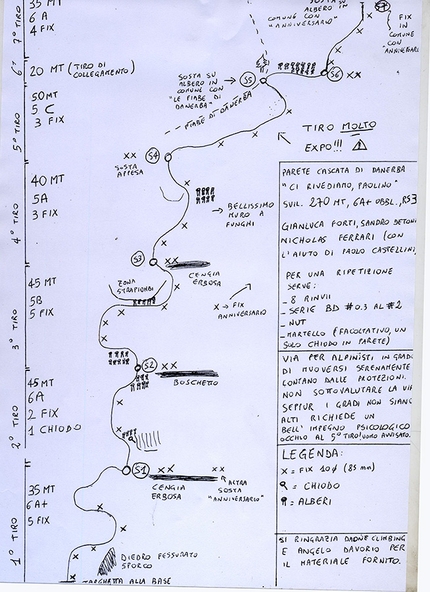 35 MT
6 A
4 FIX
7° TIRO
SOSTA SU
ALBERO IN
COMUNE CON
"ANNIVERSARIO"
FIX
IN
COMUNE
CON
6° TIRO
20 MT (TIRO DI
COLLEGAMENTO)
S6
XX
SOSTA SU
ALBERO IN
COMUNE CON
"LE FIABE DI
DANERBA"
S5
FIABE DI DANERBA
50 MT
5 C
3 FIX
5° TIRO
TIRO MOLTO
EXPO!!!
XX
SOSTA
APPESA
S4
40 MT
5A
3 FIX
4° TIRO
BELLISSIMO
MURO A
FUNGHI
S3
XX
CENGIA
ERBOSA
45 MT
5B
5 FIX
3° TIRO
ZONA
STRAPIOMBI
X → FIX
ANNIVERSARIO
S2
XX
BOSCHETTO
45 MT
6A
2 FIX
1 CHIODO
2° TIRO
S1
XX
XX
CENGIA
ERBOSA
ALTRA
SOSTA
"ANNIVERSARIO"
35 MT
6A+
5 FIX
1° TIRO
DIEDRO FESSURATO
SPORCO
ALLA BASE
PARETE CASCATA DI DANERBA
"CI RIVEDIAMO, PAOLINO"
SVIL. 270 MT, 6A+ OBBL., RS3
GIANLUCA FORTI, SANDRO
NICHOLAS FERRARI (CON
L'AIUTO DI PAOLO CASTELLINI
PER UNA RIPETIZIONE
SERVE:
- 8 RINVII
- SERIE BD #0.3 AL #2
- NUT
- MARTELLO (FACOLTATIVO, UN
SOLO CHIODO IN PARETE)
VIA PER ALPINISTI IN GRADO
DI MUOVERSI SERENAMENTE
LONTANO DALLE PROTEZIONI.
NON SOTTOVALUTARE LA VIA
SEPPUR I GRADI NON SIANO
ALTI RICHIEDE UN
BELL' IMPEGNO PSICOLOGICO
OCCHIO AL 5° TIRO! UOMO AVVISATO..
LEGENDA:
X = FIX 10 Ø (85 mm)
= CHIODO
= ALBERI
SI RINGRAZIA DAONE CLIMBING
E ANGELO DAVORIO PER
IL MATERIALE FORNITO.